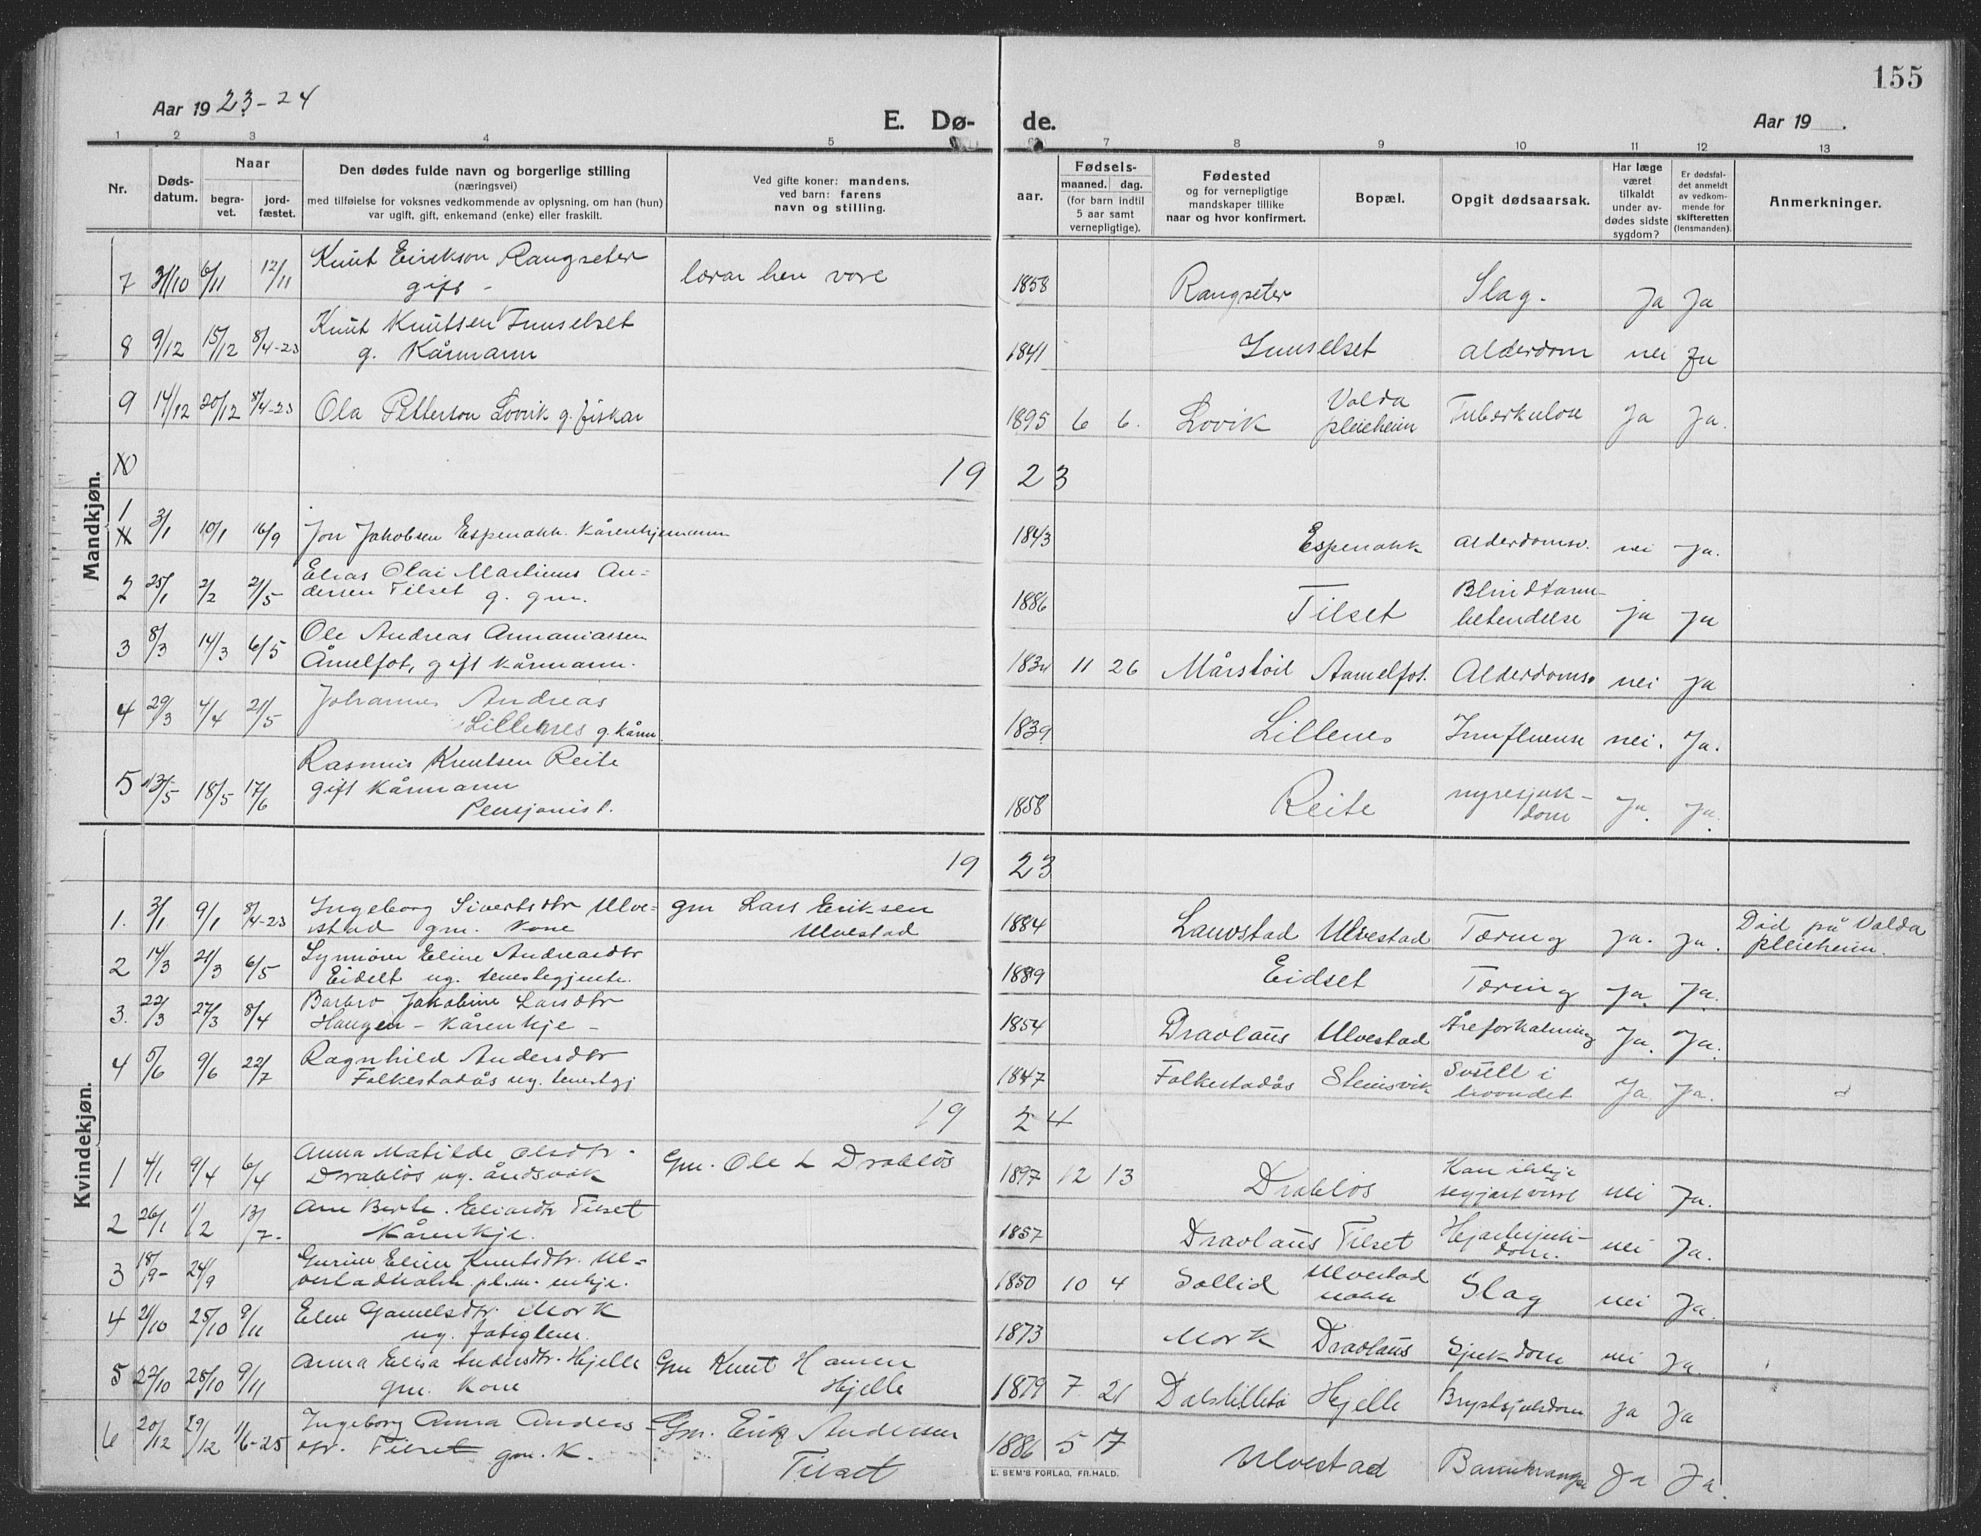 155
Aar 1923-24
E. Dø- de.
Aar 19 .
1 2 3 4 5 6 7 8 9 10 11 12 13
Nr.
Døds-
datum.
Naar
begra-
vet.
jord-
fæstet.
Den dødes fulde navn og borgerlige stilling
(næringsvei)
med tilføielse for voksnes vedkommende av oplysning, om han (hun)
var ugift, gift, enkemand (enke) eller fraskilt.
Ved gifte koner: mandens,
ved barn: farens
navn og stilling.
aar.
Fødsels-
maaned. dag.
(for barn indtil
5 aar samt
vernepligtige).
Fødested
og for vernepligtige
mandskaper tillike
naar og hvor konfirmert.
Bopæl.
Opgit dødsaarsak.
Har læge
været
tilkaldt
under av-
dødes sidste
sygdom?
Er dødsfal-
det anmeldt
av vedkom-
mende for
skifteretten
(lensmanden).
Anmerkninger.
Mandkjøn.
7 31/10 6/11 12/11 Knut Eirikson Rangseter
gift - lærar hen vore 1858 Rangseter Slag. Ja Ja
8 9/12 15/12 8/4-23 Knut Knutsen Innselset
g. Kårmann 1841 Innselset alderdom nei Ja
9 14/12 20/12 8/4-23 Ola Petterson Lovik g. fiskar 1895 6 6. Lovik Volda
pleieheim Tuberkulose Ja Ja.
19 23
1 3/1 10/1 16/9 Jon Jakobsen Espenakk. Kårenkjemann 1843 Espenakk Alderdomsv. nei Ja.
2 25/1 2/2 21/5 Elias Olai Martinus An-
dersen Tilset g. gm. 1886 Tilset Blindtarm-
betendelse ja Ja
3 8/3 14/3 6/5 Ole Andreas Annaniassen
Åmelfot, gift kårmann. 11 26 Mårstøil Aamelfot. Alderdomsv nei Ja
4 29/3 4/4 21/5 Johannes Andreas
Lillenes g. kårm. 1839 Lillenes Innfluense nei. Ja.
5 13/5 18/5 17/6 Rasmus Knutsen Reite
gift kårmann
Pensjonist. 1858 Reite nyresjuk-
dom Ja. Ja.
Kvindekjøn.
19 23
1. 3/1 9/1 8/4-23 Ingeborg Sivertsdtr Ulve-
stad gm. Kone gm Lars Eriksen
Ulvestad 1884 Lauvstad Ulvestad Tæring Ja. Ja. Død på Volda
pleieheim.
2 14/3 21/3 6/5 Synnøve Eline Andreasdtr
Eidset ug. tenestegjente. 1889 Eidset Tæring Ja. Ja.
3. 22/3 27/3 8/4 Barbro Jakobine Larsdtr
Haugen - Kårenkje - 1854 Dravlaus Ulvestad Åreforkalning Ja. Ja.
4 5/6 9/6 22/7 Ragnhild Andersdtr
Folkestadås ug. tenestgj 1847 Folkestadås Steinsvik Svull i
livondet Ja Ja.
19 24
1 4/1 9/4 6/4 Anna Matilde Olsdtr.
Drabløs ug. åndsvak Gm. Ole L Drabløs 1897 12 13 Drabløs Kan ikkje
segjast visst nei Ja.
2 26/1 1/2 13/7. Ane Berte Eliasdtr Tilset
Kårenkje. 1857 Dravlaus Tilset Hjartesjuk-
dom. nei Ja.
3 18/9- 24/9 Gurine Eline Knutsdtr. Ul-
vestadnakk. pl.m. enkje. 1850 10 4 Sollid Ulvestad
nakk Slag nei Ja.
4 21/10 25/10 9/11 Elen Gamelsdtr. Mork
ug. fatiglem. 1873 Mork Dravlaus Sjukdom nei Ja.
5 22/10 28/10 9/11 Anna Elisa Andersdtr. Hjelle
gm. Kone Gm Knut Hansen
Hjelle 1879 7. 21 Hjelle Brystsjukdom Ja Ja
6 20/12 29/12 1/6-25 Ingeborg Anna Anders-
dtr. Tilset gm. K. Gm. Erik Andersen
Tilset 1886 5 17 Ulvestad Ja Ja.
E. SEM'S FORLAG, FR.HALD.